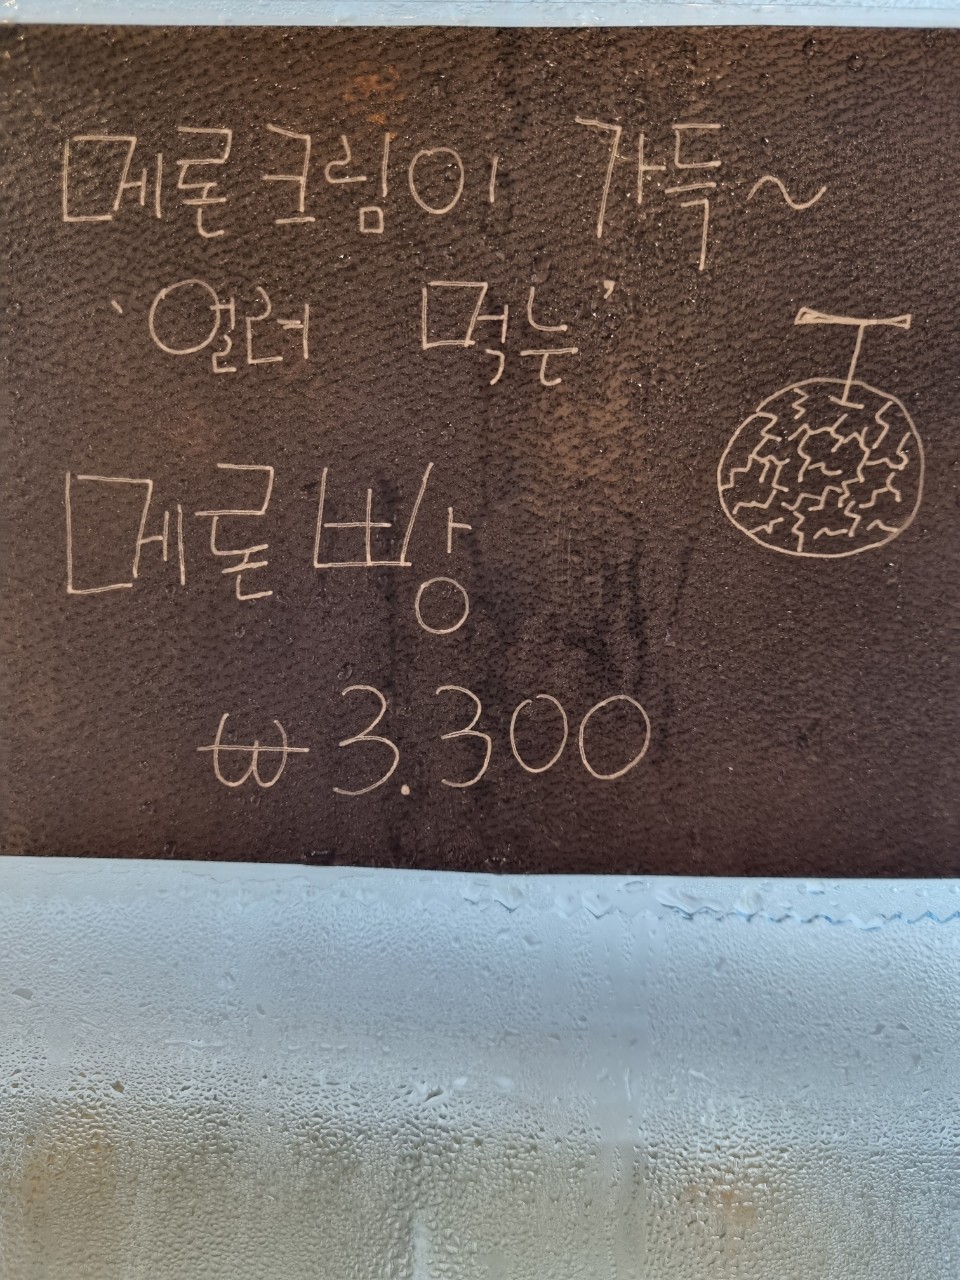 메론크림이 가득~
'열려 먹는'
메론빵
₩3.300